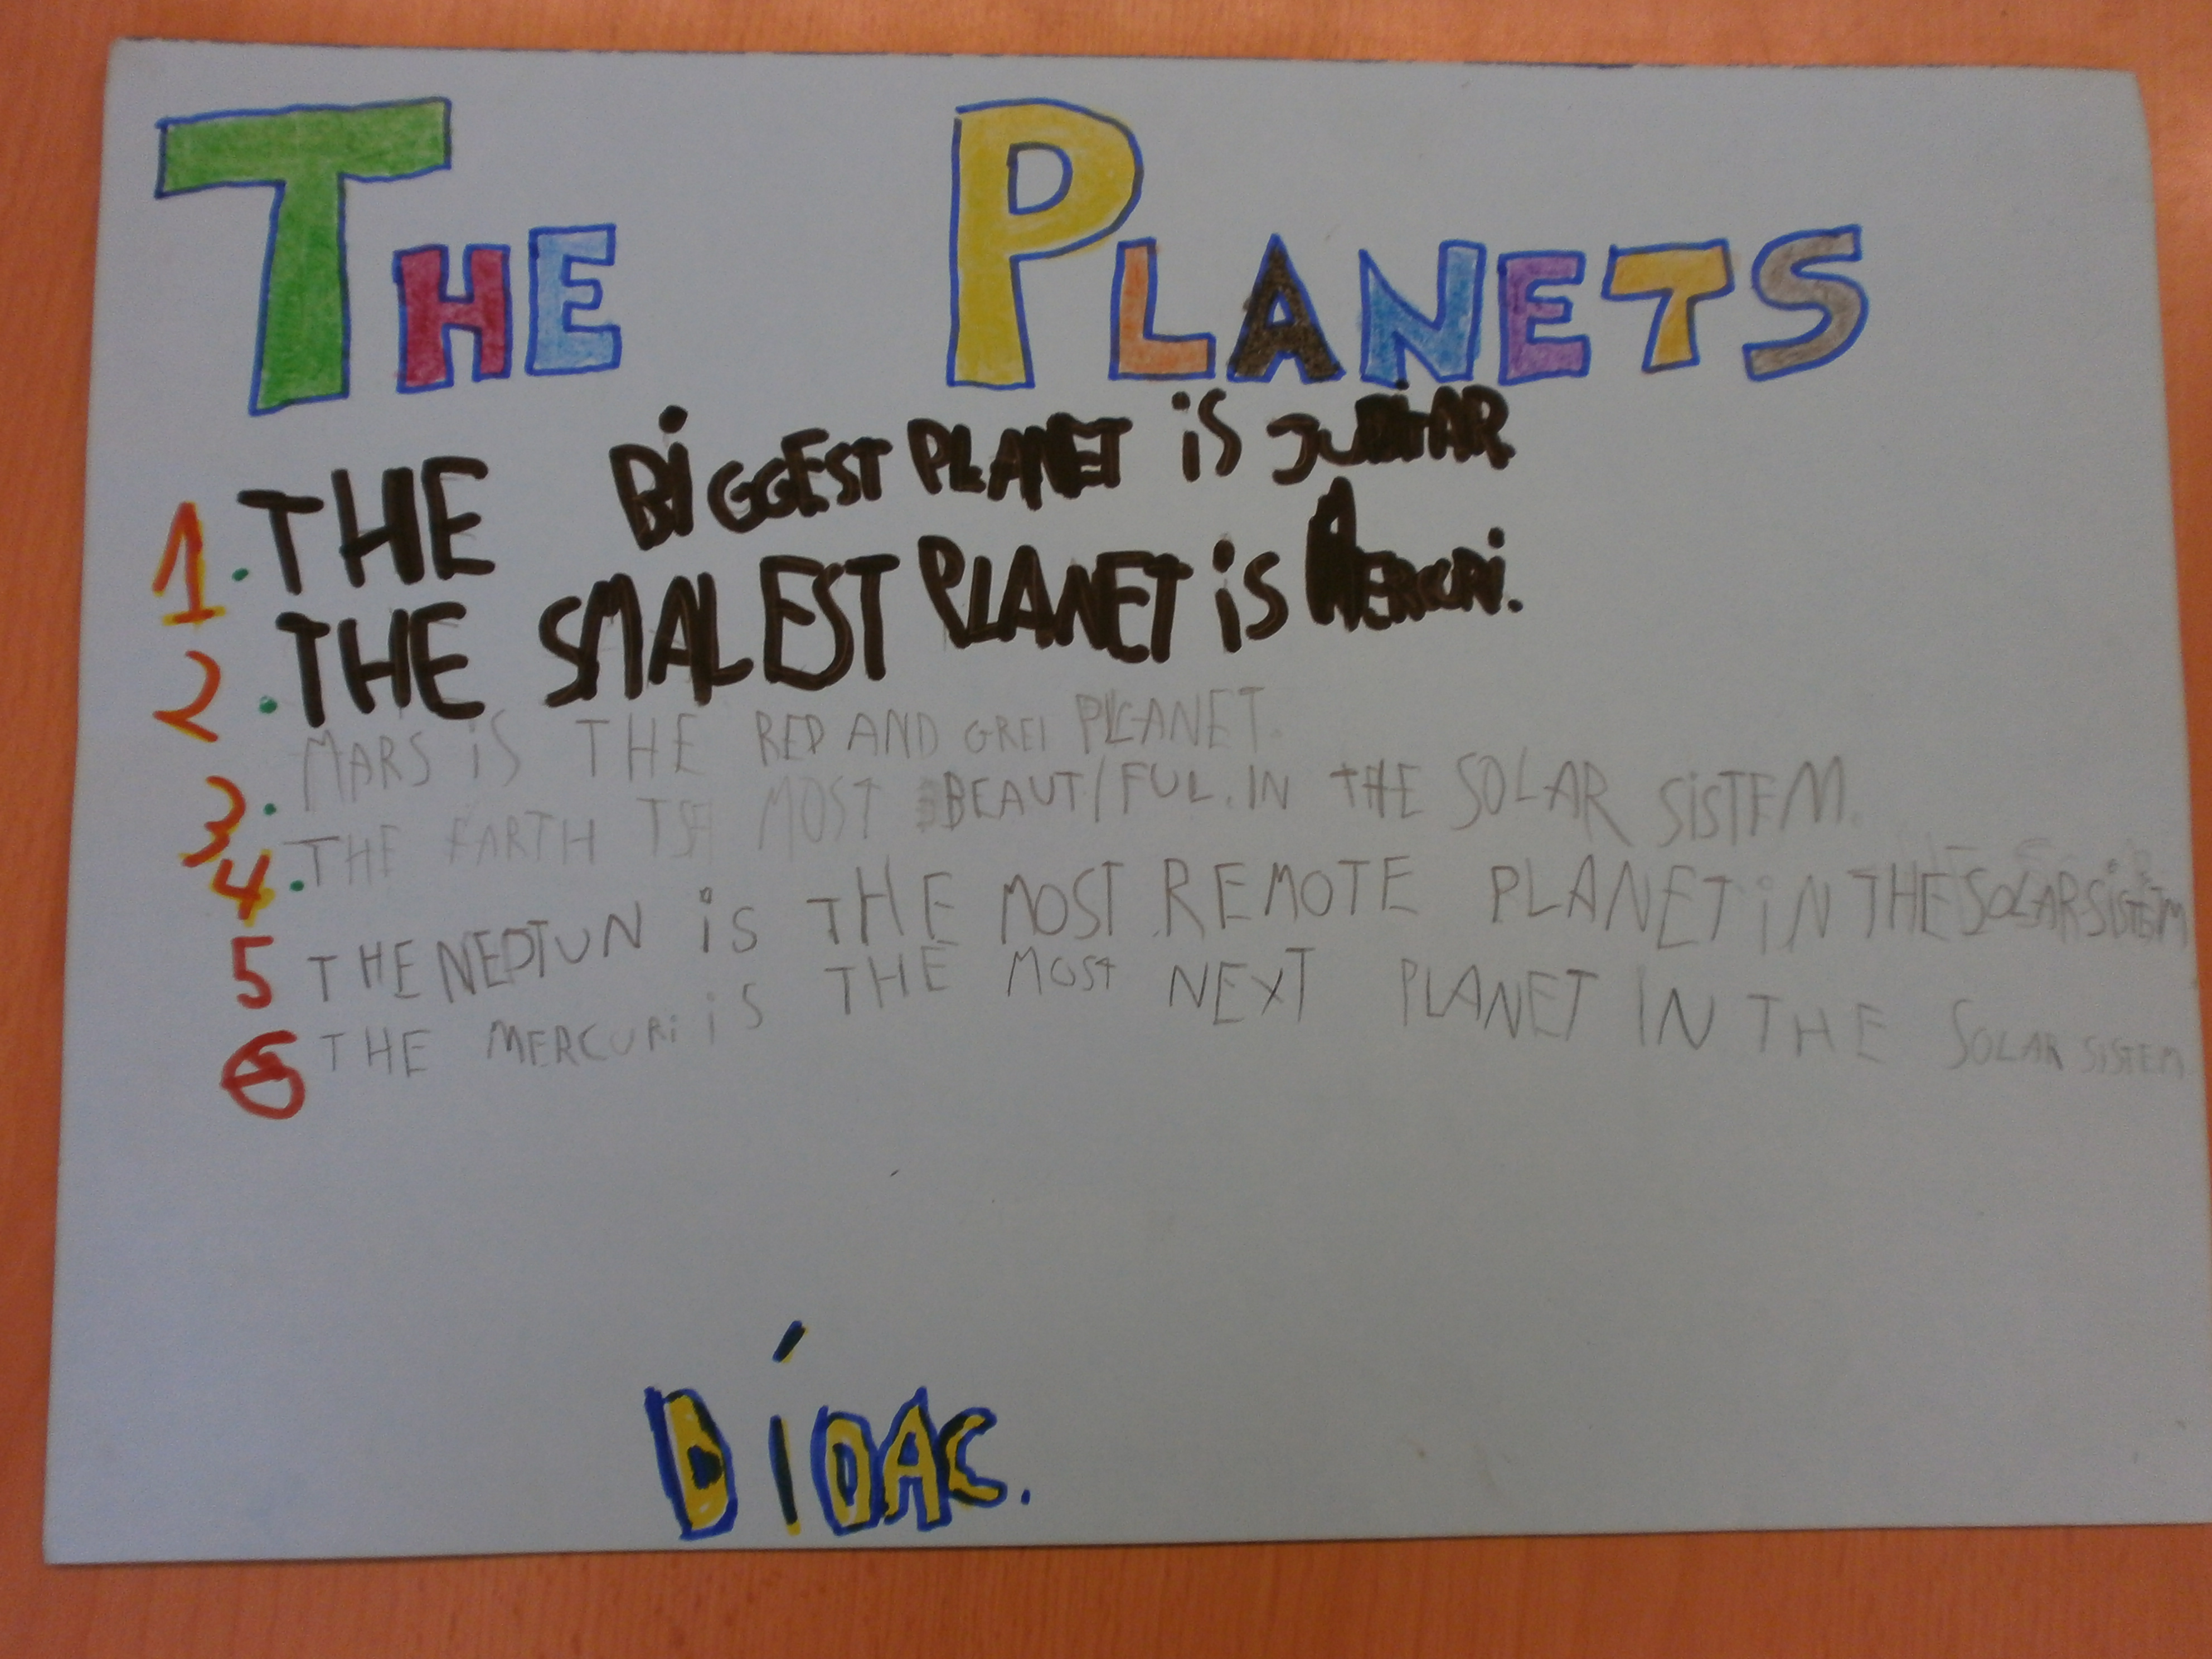 THE PLANETS
1. THE BIGGEST PLANET iS
2. THE SMALEST PLANET iS MERCURi.
3. MARS iS THE RED AND GREI PLANET.
4. THE EARTH MOST BEAUTIFUL. IN THE SOLAR SiSTEM.
5 THE NEPTUN iS THE MOST REMOTE PLANET iN THE SOLAR SiSTEM
6 THE MERCURi iS THE MOST NEXT PLANET IN THE SOLAR SISTEM
DÍDAC.